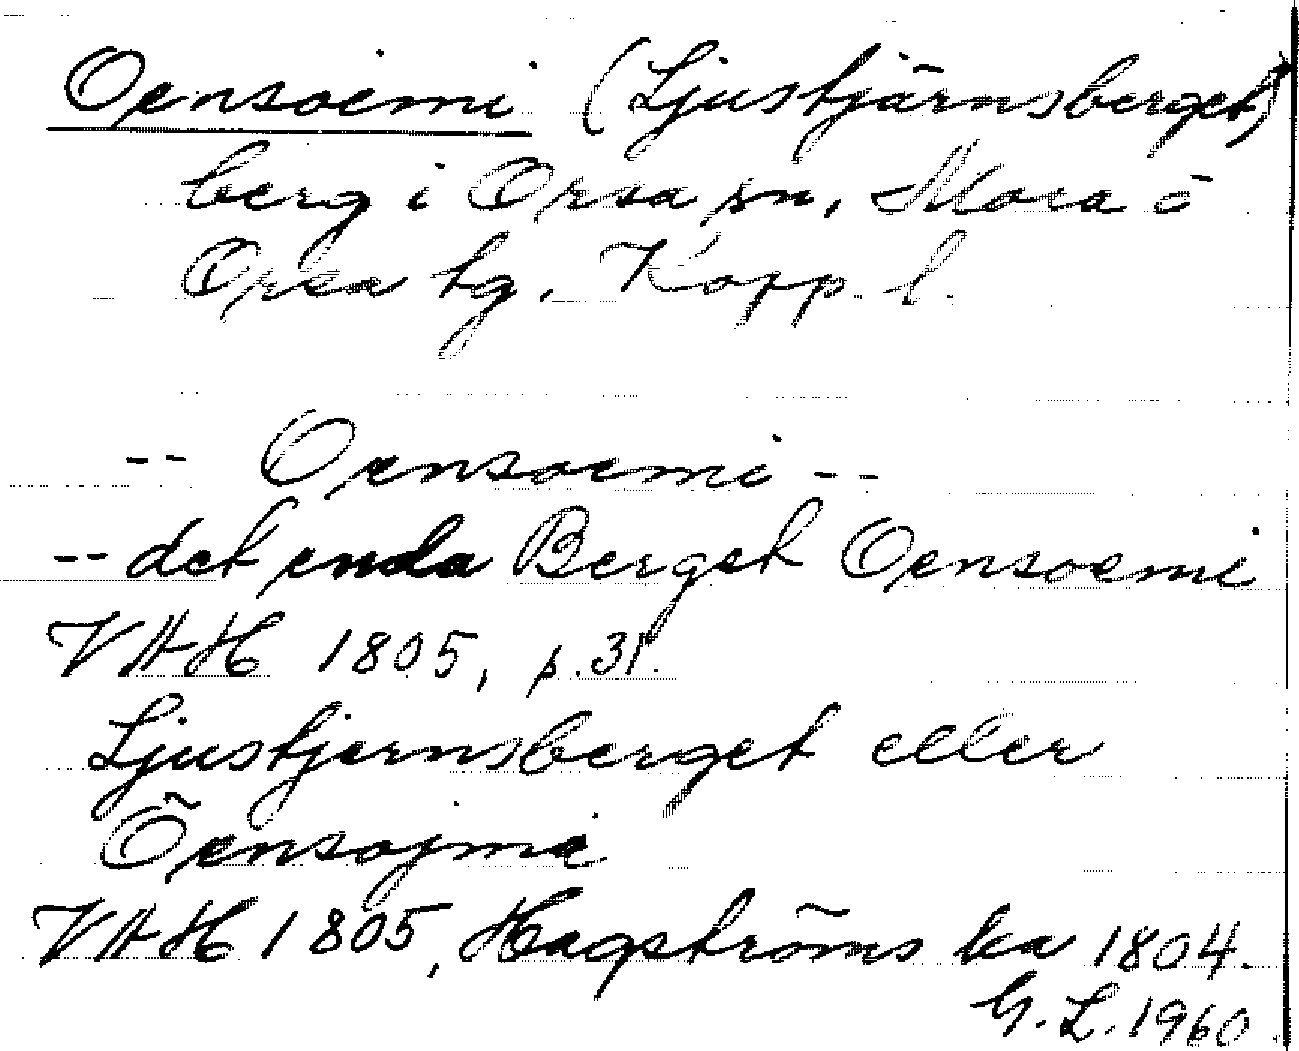 Oensoemi (Ljustjärnsberget)
berg i Orsa sn, Mora ö
Orsa tg. Kopp. l.
-- Oensoemi --
-- det enda Berget Oensoemi
VAH 1805, p. 31.
Ljustjernsberget eller
Öensojmi
VAH 1805, Hagströms ka 1804.
G. L. 1960